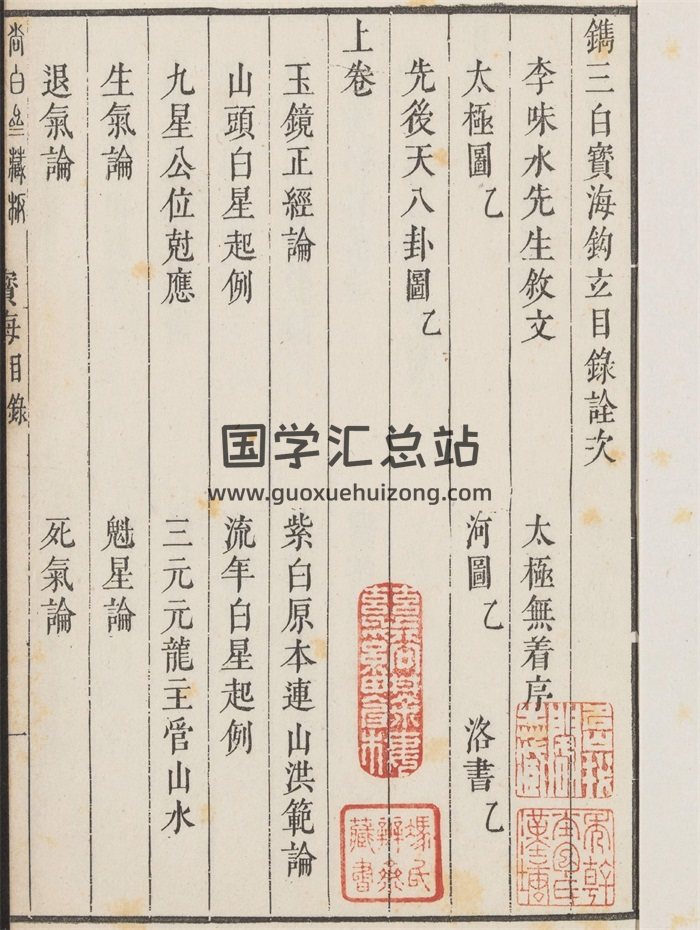 鐫三白寳海鈎玄目錄詮次
李味水先生敘文 太極無着序
太極圖乙 河圖乙 洛書乙
先後天八卦圖乙
上卷
玉鏡正經論 紫白原本連山洪範論
山頭白星起例 流年白星起例
九星公位尅應 三元元龍主管山水
生氣論 魁星論
退氣論 死氣論
尚白齋藏板 寳海目錄 一
国学汇总站
www.guoxuehuizong.com
馮氏辨齋藏書